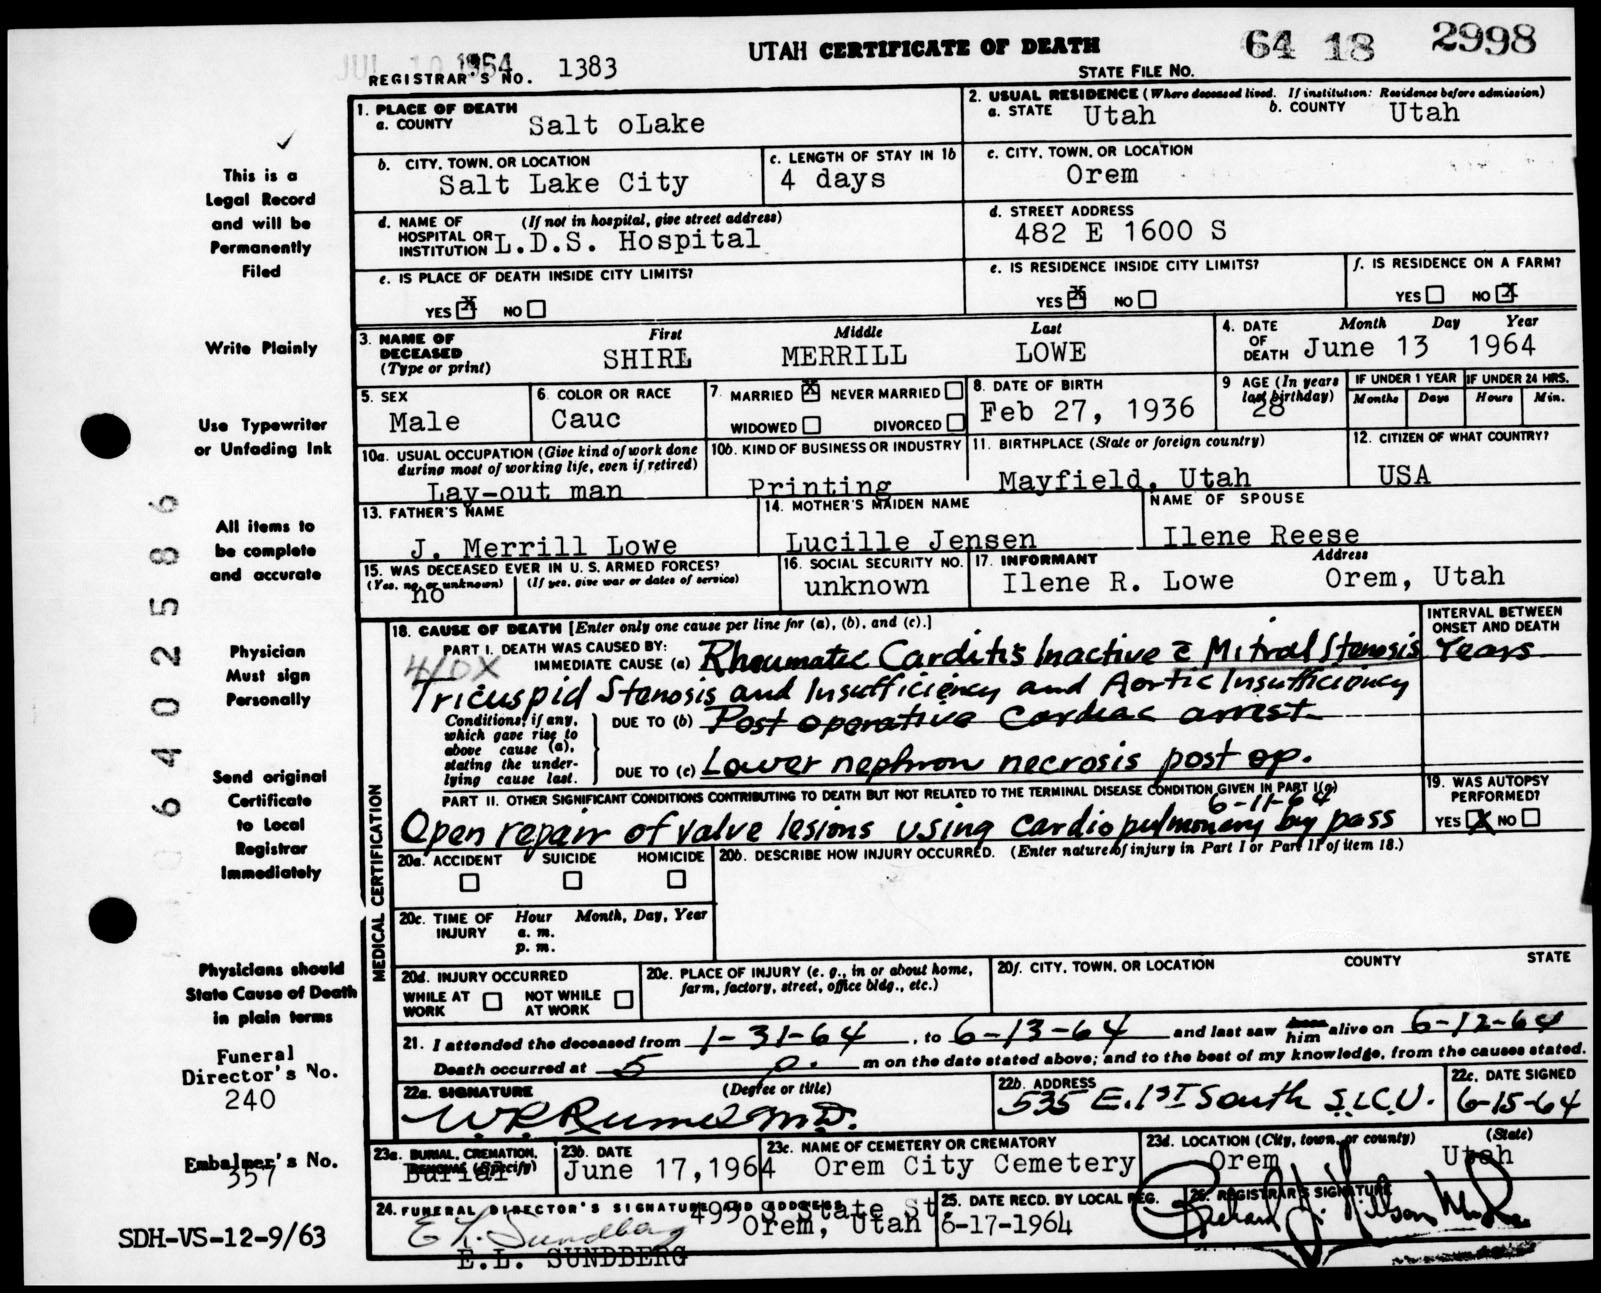 JUL 10 1964
UTAH CERTIFICATE OF DEATH
64 18 2998
REGISTRAR'S NO. 1383
STATE FILE NO.
1. PLACE OF DEATH
a. COUNTY Salt oLake
2. USUAL RESIDENCE (Where deceased lived. If institution: Residence before admission)
a. STATE Utah b. COUNTY Utah
b. CITY, TOWN, OR LOCATION
Salt Lake City
c. LENGTH OF STAY IN 1b
4 days
c. CITY, TOWN, OR LOCATION
Orem
d. NAME OF HOSPITAL OR INSTITUTION (If not in hospital, give street address)
L.D.S. Hospital
d. STREET ADDRESS
482 E 1600 S
e. IS PLACE OF DEATH INSIDE CITY LIMITS?
YES X NO
e. IS RESIDENCE INSIDE CITY LIMITS?
YES X NO
f. IS RESIDENCE ON A FARM?
YES NO X
3. NAME OF DECEASED (Type or print)
First Middle Last
SHIRL MERRILL LOWE
4. DATE OF DEATH Month Day Year
June 13 1964
5. SEX
Male
6. COLOR OR RACE
Cauc
7. MARRIED X NEVER MARRIED
WIDOWED DIVORCED
8. DATE OF BIRTH
Feb 27, 1936
9 AGE (In years last birthday)
28
IF UNDER 1 YEAR
Months Days
IF UNDER 24 HRS.
Hours Min.
10a. USUAL OCCUPATION (Give kind of work done during most of working life, even if retired)
Lay-out man
10b. KIND OF BUSINESS OR INDUSTRY
Printing
11. BIRTHPLACE (State or foreign country)
Mayfield, Utah
12. CITIZEN OF WHAT COUNTRY?
USA
13. FATHER'S NAME
J. Merrill Lowe
14. MOTHER'S MAIDEN NAME
Lucille Jensen
NAME OF SPOUSE
Ilene Reese
15. WAS DECEASED EVER IN U.S. ARMED FORCES?
(Yes, no, or unknown) (If yes, give war or dates of service)
no
16. SOCIAL SECURITY NO.
unknown
17. INFORMANT Address
Ilene R. Lowe Orem, Utah
18. CAUSE OF DEATH [Enter only one cause per line for (a), (b), and (c).]
INTERVAL BETWEEN ONSET AND DEATH
PART I. DEATH WAS CAUSED BY:
410X
IMMEDIATE CAUSE (a) Rheumatic Carditis Inactive c̄ Mitral Stenosis Years
Tricuspid Stenosis and Insufficiency and Aortic Insufficiency
Conditions, if any, which gave rise to above cause (a), stating the underlying cause last.
DUE TO (b) Post operative Cardiac arrest
DUE TO (c) Lower nephron necrosis post op.
PART II. OTHER SIGNIFICANT CONDITIONS CONTRIBUTING TO DEATH BUT NOT RELATED TO THE TERMINAL DISEASE CONDITION GIVEN IN PART I(a)
6-11-64
Open repair of valve lesions using cardiopulmonary by pass
19. WAS AUTOPSY PERFORMED?
YES X NO
MEDICAL CERTIFICATION
20a. ACCIDENT SUICIDE HOMICIDE
20b. DESCRIBE HOW INJURY OCCURRED. (Enter nature of injury in Part I or Part II of item 18.)
20c. TIME OF INJURY Hour Month, Day, Year
a. m.
p. m.
20d. INJURY OCCURRED
WHILE AT WORK NOT WHILE AT WORK
20e. PLACE OF INJURY (e. g., in or about home, farm, factory, street, office bldg., etc.)
20f. CITY, TOWN, OR LOCATION COUNTY STATE
21. I attended the deceased from 1-31-64, to 6-13-64 and last saw her him alive on 6-12-64
Death occurred at 5 p. m on the date stated above; and to the best of my knowledge, from the causes stated.
22a. SIGNATURE (Degree or title)
W.R. Rumel M.D.
22b. ADDRESS
535 E. 1st South S.L.C.U.
22c. DATE SIGNED
6-15-64
23a. BURIAL, CREMATION, REMOVAL (Specify)
Burial
23b. DATE
June 17, 1964
23c. NAME OF CEMETERY OR CREMATORY
Orem City Cemetery
23d. LOCATION (City, town, or county) (State)
Orem Utah
24. FUNERAL DIRECTOR'S SIGNATURE AND ADDRESS
495 S State St
Orem, Utah
E L. Sundberg
E.L. SUNDBERG
25. DATE RECD. BY LOCAL REG.
6-17-1964
26. REGISTRAR'S SIGNATURE
This is a
Legal Record
and will be
Permanently
Filed
Write Plainly
Use Typewriter
or Unfading Ink
All items to
be complete
and accurate
Physician
Must sign
Personally
Send original
Certificate
to Local
Registrar
Immediately
Physicians should
State Cause of Death
in plain terms
Funeral
Director's No.
240
Embalmer's No.
357
SDH-VS-12-9/63
6402586